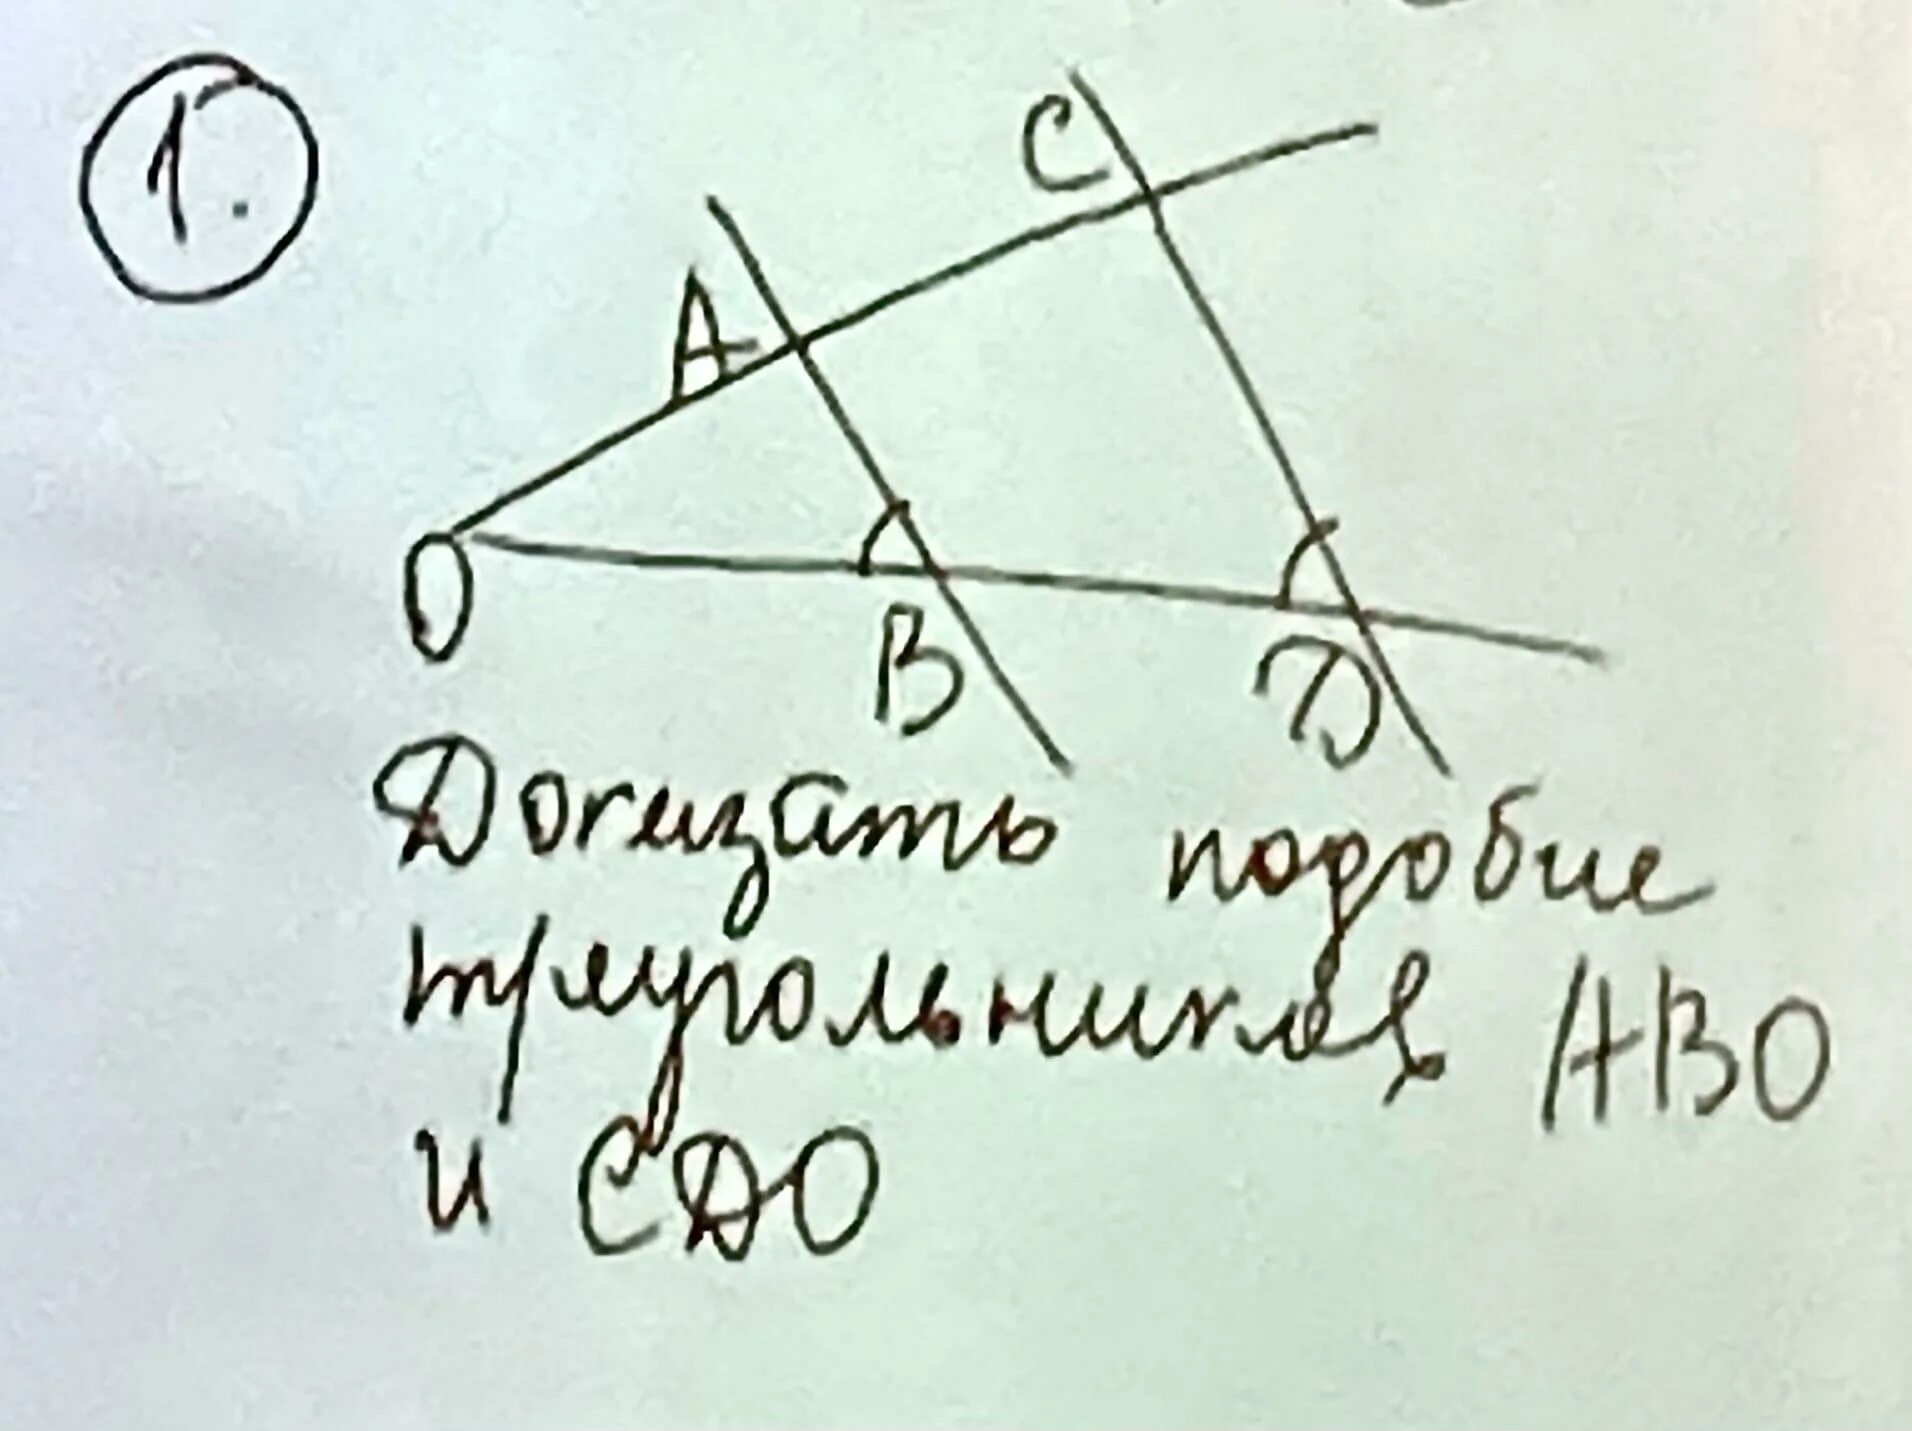 1.
C
A
O
B
D
Доказать подобие
треугольников ABO
и CDO